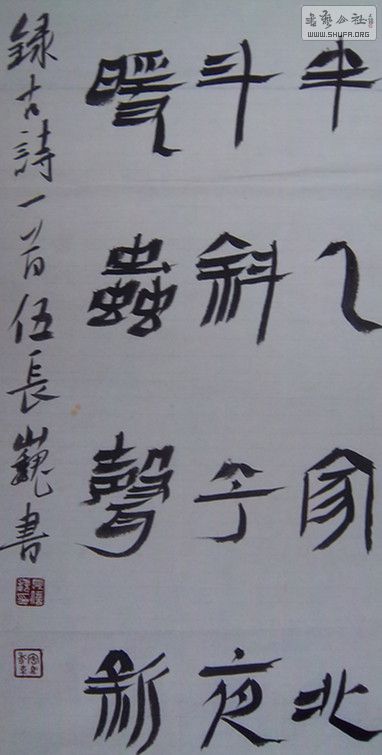 書藝公社
WWW.SHUFA.ORG
半人家北
斗斜今夜
暖蟲聲新
録古詩一首伍長巍書